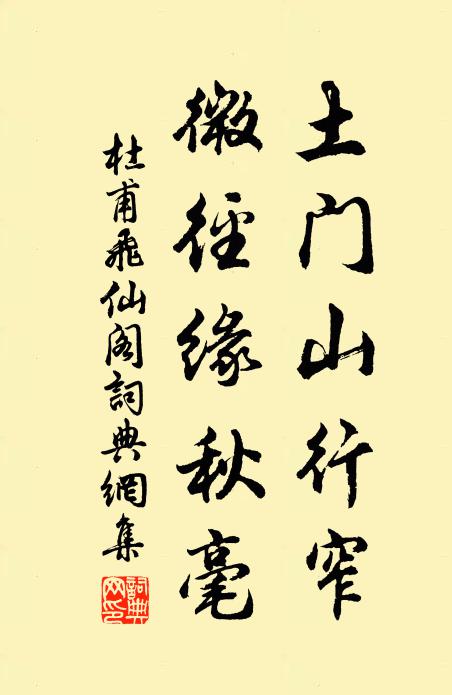 土门山行窄
微径缘秋毫
杜甫飛仙阁詞典網集
詞典网印